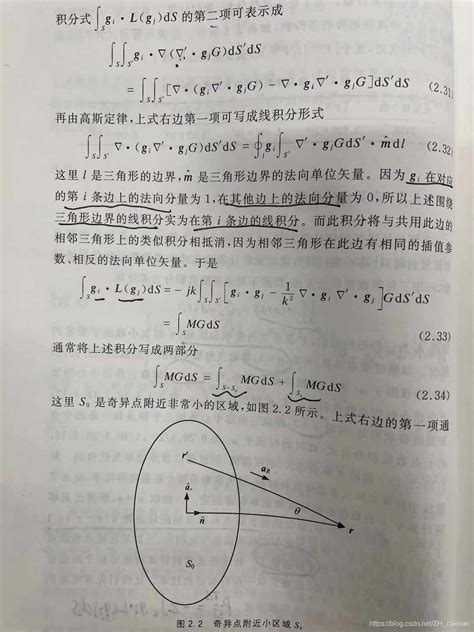 积分式∫_S g_i · L(g_j)dS 的第二项可表示成
∫_S∫_S' g_i · ∇(∇' · g_j G)dS'dS
= ∫_S∫_S' [∇ · (g_i ∇' · g_j G) − ∇ · g_i ∇' · g_j G]dS'dS (2.31)
再由高斯定律,上式右边第一项可写成线积分形式
∫_S∫_S' ∇ · (g_i ∇' · g_j G)dS'dS = ∮_l g_i ∫_S' ∇' · g_j G dS' · m̂ dl (2.32)
这里 l 是三角形的边界,m̂ 是三角形边界的法向单位矢量。因为 g_i 在对应
的第 i 条边上的法向分量为 1,在其他边上的法向分量为 0,所以上述围绕
三角形边界的线积分实为在第 i 条边的线积分。而此积分将与共用此边的
相邻三角形上的类似积分相抵消,因为相邻三角形在此边有相同的插值参
数、相反的法向单位矢量。于是
∫_S g_i · L(g_j)dS = − jk∫_S∫_S' [g_i · g_j − 1/k² ∇ · g_i ∇' · g_j]G dS'dS
= ∫_S MG dS (2.33)
通常将上述积分写成两部分
∫_S MG dS = ∫_{S−S₀} MG dS + ∫_{S₀} MG dS (2.34)
这里 S₀ 是奇异点附近非常小的区域,如图 2.2 所示。上式右边的第一项通
r'
a_R
â_r
θ
n̂
r
S₀
图 2.2 奇异点附近小区域 S₀